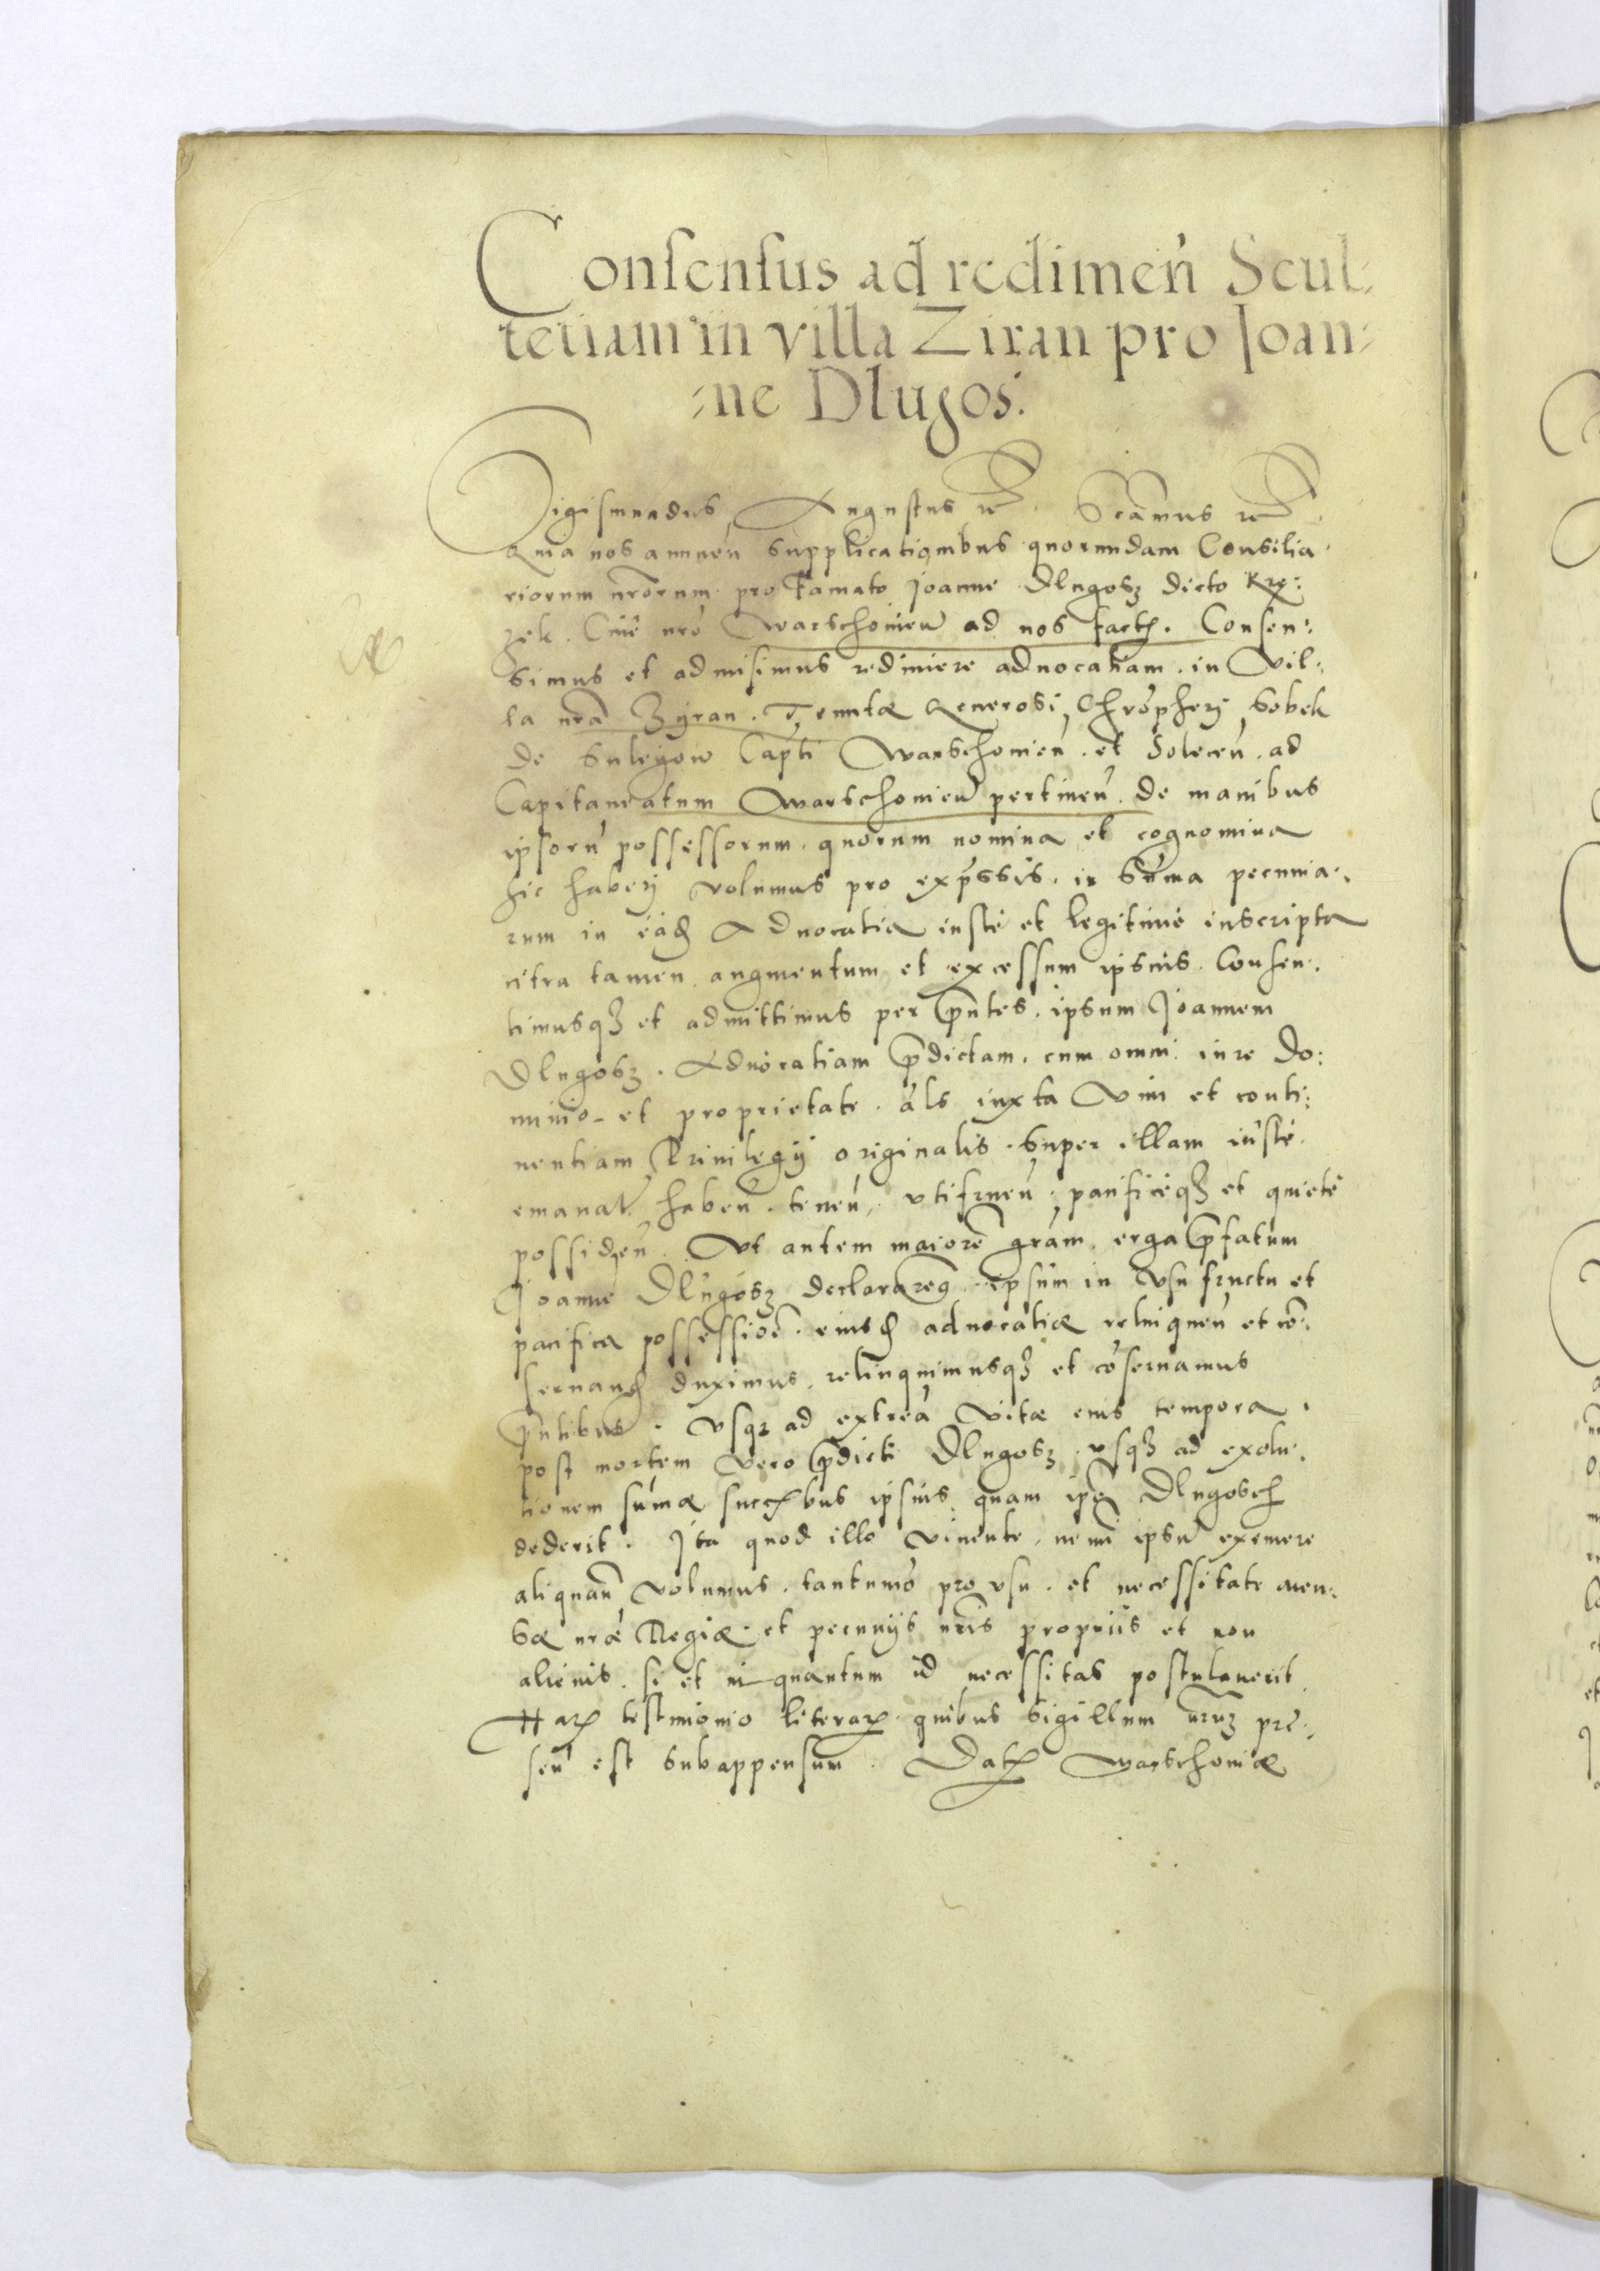 Consensus ad redimeń Scul⸗
tetiam in villa Ziran pro Joan⸗
⸗ne Dlugos.
Sigismundus Augustus &c. Scamus &c.
Quia nos annueń supplicationibus quorundam Consilia⸗
riorum nrorum pro famato Joanne Dlugosz dicto Krę⸗
zek. Ciue nro Warschouień ad nos fact. Consen⸗
simus et admisimus redimere aduocatiam in Vil⸗
la nra Zyran. Tenutæ Generosi Chropherj Sobek
de Sulegow Capti Warschouień et Soleceń. ad
Capitaneatum Warschouień pertineń. de manibus
ipsorū possessorum. quorum nomina et cognomina
hic haberj volumus pro expssis. in Suma pecunia⸗
rum in eadē Aduocatia iuste et legitime inscripta
citra tamen augmentum et excessum ipsius. Consen⸗
timusqȝ et admittimus per pntes. ipsum Joannem
Dlugosz. Aduocatiam pdictam. cum omni iure do⸗
minio et proprietate. als iuxta Vim et conti⸗
nentiam Priuilegij originalis. super illam iuste
emanat. habeń. teneń. vtifrueń. pacificeqȝ et quiete
possideń. Vt autem maiorē gram erga pfatum
Joanne Dlugosz declararem9 ipsum in Vsu fructu et
pacifica possessioē. eiusdē aduocatiæ relinqueń et cō⸗
seruand duximus. relinquimusqȝ et cōseruamus
pntibus. Vsqz ad extrea Vitæ eius tempora.
post mortem Vero pdicti Dlugosz. vsqȝ ad exolu⸗
tionem sumæ succribus ipsius quam ipse Dlugosch
dederit. Ita quod illo viuente, nemi ipsū exemere
aliquam volumus. tantumo pro vsu. et necessitate men⸗
sæ nræ Regiæ et pecunijs nris proprijs et non
alienis. si et inquantum id necessitas postulauerit
Har testimonio literar quibus Sigillum nruȝ pre⸗
seń est subappensum. Dat Warschouiæ